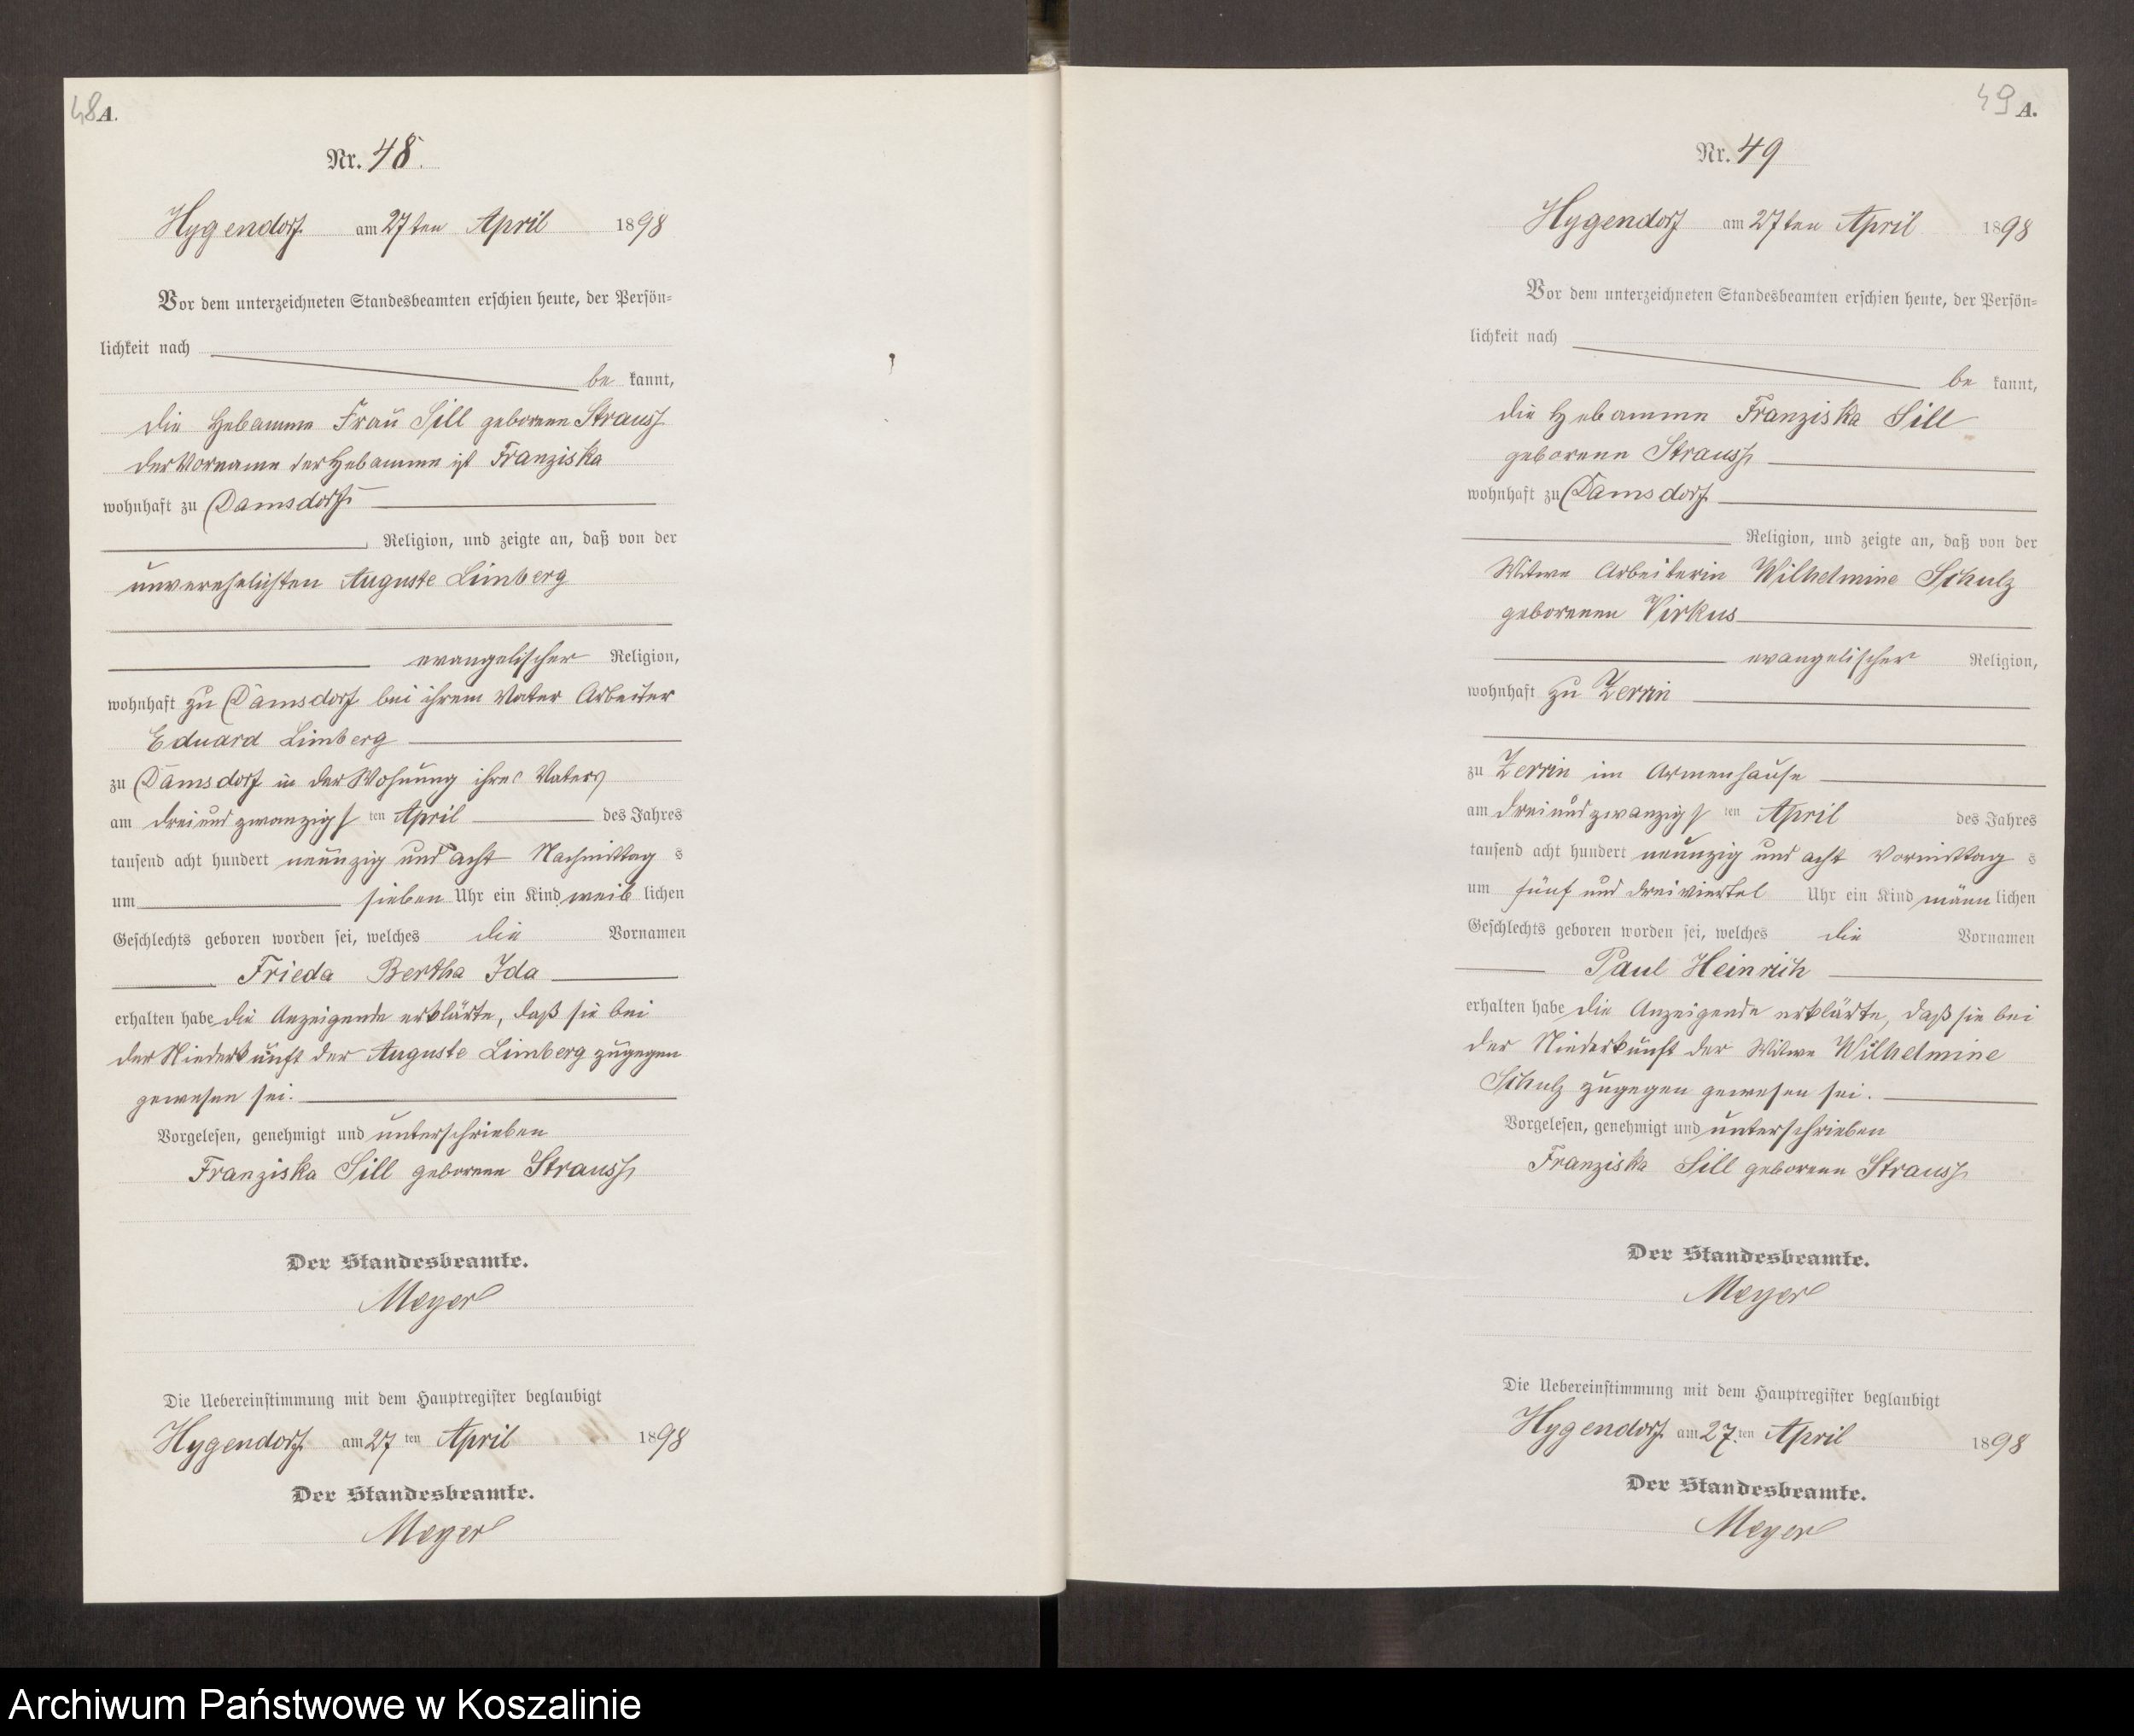 48 A.
Nr. 48.
Hygendorf am 27ten April 1898
Vor dem unterzeichneten Standesbeamten erschien heute, der Persön=
lichkeit nach
be kannt,
die Hebamme Frau Sill geborene Strauss
der Vorname der Hebamme ist Franziska
wohnhaft zu Damsdorf
Religion, und zeigte an, daß von der
unverehelichten Auguste Limberg
evangelischer Religion,
wohnhaft zu Damsdorf bei ihrem Vater Arbeiter
Eduard Limberg
zu Damsdorf in der Wohnung ihres Vaters
am dreiundzwanzigsten April des Jahres
tausend acht hundert neunzig und acht Nachmittag s
um sieben Uhr ein Kind weib lichen
Geschlechts geboren worden sei, welches die Vornamen
Frieda Bertha Ida
erhalten habe die Anzeigende erklärte, daß sie bei
der Niederkunft der Auguste Limberg zugegen
gewesen sei.
Vorgelesen, genehmigt und unterschrieben
Franziska Sill geborene Strauss
Der Standesbeamte.
Meyer
Die Uebereinstimmung mit dem Hauptregister beglaubigt
Hygendorf am 27 ten April 1898
Der Standesbeamte.
Meyer
49 A.
Nr. 49
Hygendorf am 27ten April 1898
Vor dem unterzeichneten Standesbeamten erschien heute, der Persön=
lichkeit nach
be kannt,
die Hebamme Franziska Sill
geborene Strauss
wohnhaft zu Damsdorf
Religion, und zeigte an, daß von der
Witwe Arbeiterin Wilhelmine Schulz
geborenen Virkus
evangelischer Religion,
wohnhaft zu Zerrin
zu Zerrin im Armenhause
am dreiundzwanzigsten April des Jahres
tausend acht hundert neunzig und acht Vormittag s
um fünf und dreiviertel Uhr ein Kind männ lichen
Geschlechts geboren worden sei, welches die Vornamen
Paul Heinrich
erhalten habe die Anzeigende erklärte, daß sie bei
der Niederkunft der Witwe Wilhelmine
Schulz zugegen gewesen sei.
Vorgelesen, genehmigt und unterschrieben
Franziska Sill geborene Strauss
Der Standesbeamte.
Meyer
Die Uebereinstimmung mit dem Hauptregister beglaubigt
Hygendorf am 27. ten April 1898
Der Standesbeamte.
Meyer
Archiwum Państwowe w Koszalinie